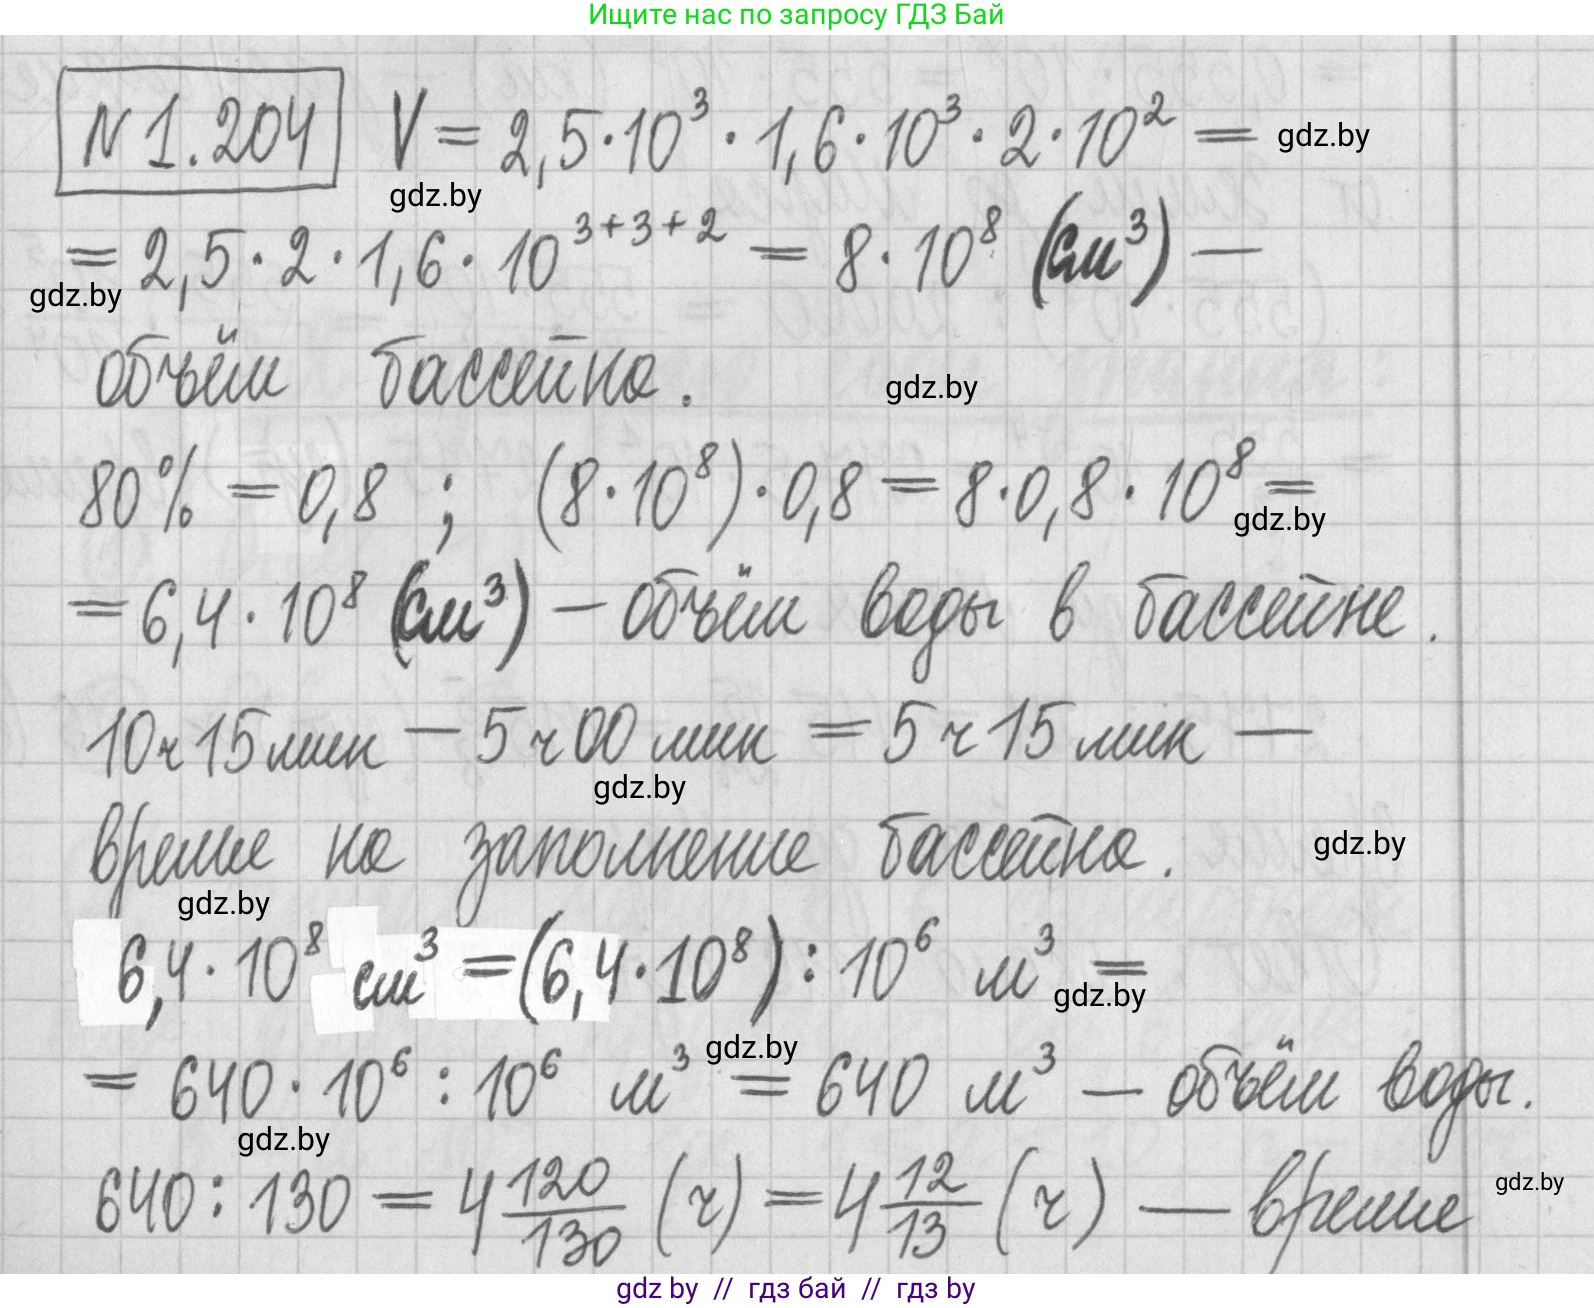 Ищите нас по запросу ГДЗ Бай
N 1.204 V = 2,5·10³ · 1,6·10³ · 2·10² = gdz.by
gdz.by
= 2,5 · 2 · 1,6 · 10³⁺³⁺² = 8 · 10⁸ (см³) —
gdz.by
объём бассейна. gdz.by
80% = 0,8 ; (8·10⁸)·0,8 = 8·0,8·10⁸ =
gdz.by
= 6,4·10⁸ (см³) – объём воды в бассейне.
10ч15мин – 5ч00мин = 5ч15мин —
gdz.by
время на заполнение бассейна. gdz.by
gdz.by
6,4·10⁸ см³ = (6,4·10⁸) : 10⁶ м³ =
gdz.by
= 640·10⁶ : 10⁶ м³ = 640 м³ – объём воды.
gdz.by
gdz.by
640 : 130 = 4 120/130 (ч) = 4 12/13 (ч) — время
gdz.by
gdz by // гдз бай // гдз by